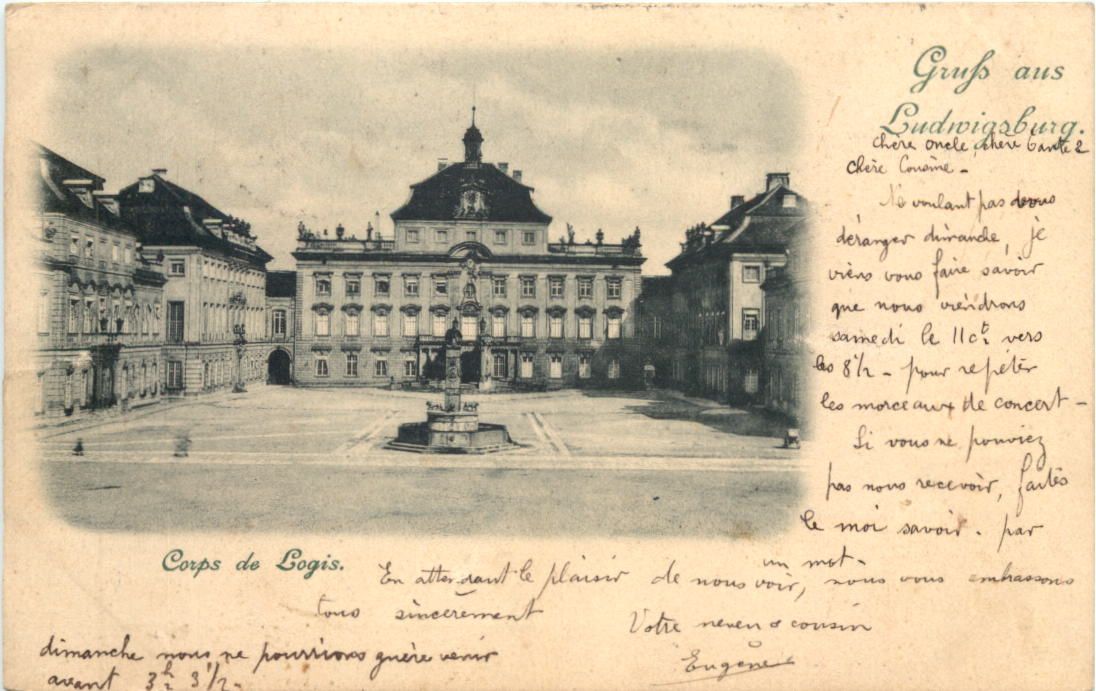 Gruß aus
Ludwigsburg.
chère oncle, chère tante &
chère Cousine -
Ne voulant pas vous
déranger dimanche, je
viens vous faire savoir
que nous viendrons
samedi le 11 ct vers
les 8 1/2 - pour repéter
les morceaux de concert -
Si vous ne pouviez
pas nous recevoir, faites
le moi savoir - par
un mot -
Corps de Logis.
En attendant le plaisir de nous voir, nous vous embrassons
tous sincèrement
Votre neveu & cousin
Eugène
dimanche nous ne pourrions guère venir
avant 3h 3 1/2 -